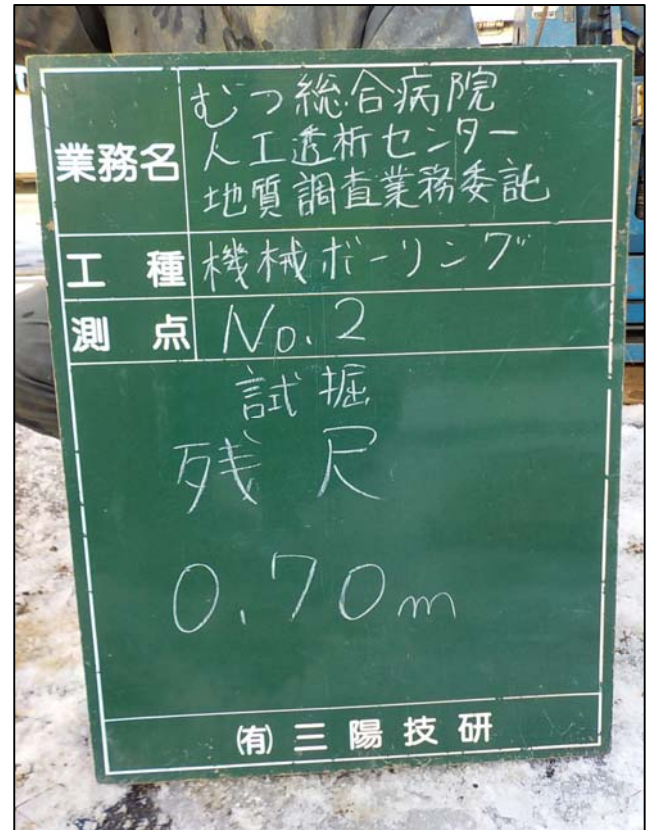 業務名
むつ総合病院
人工透析センター
地質調査業務委託
工種 機械ボーリング
測点 No.2
試掘
残尺
0.70m
(有)三陽技研